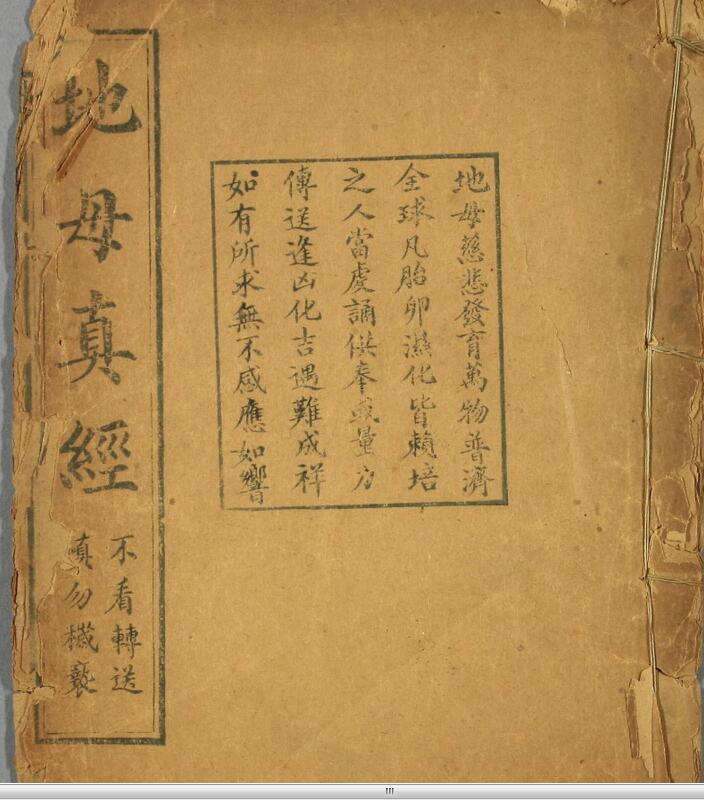 地母慈悲發育萬物普濟
全球凡胎卵濕化皆賴培
之人當虔誦供奉或量力
傳送逢凶化吉遇難成祥
如有所求無不感應如響
地母真經
不看轉送
慎勿穢褻